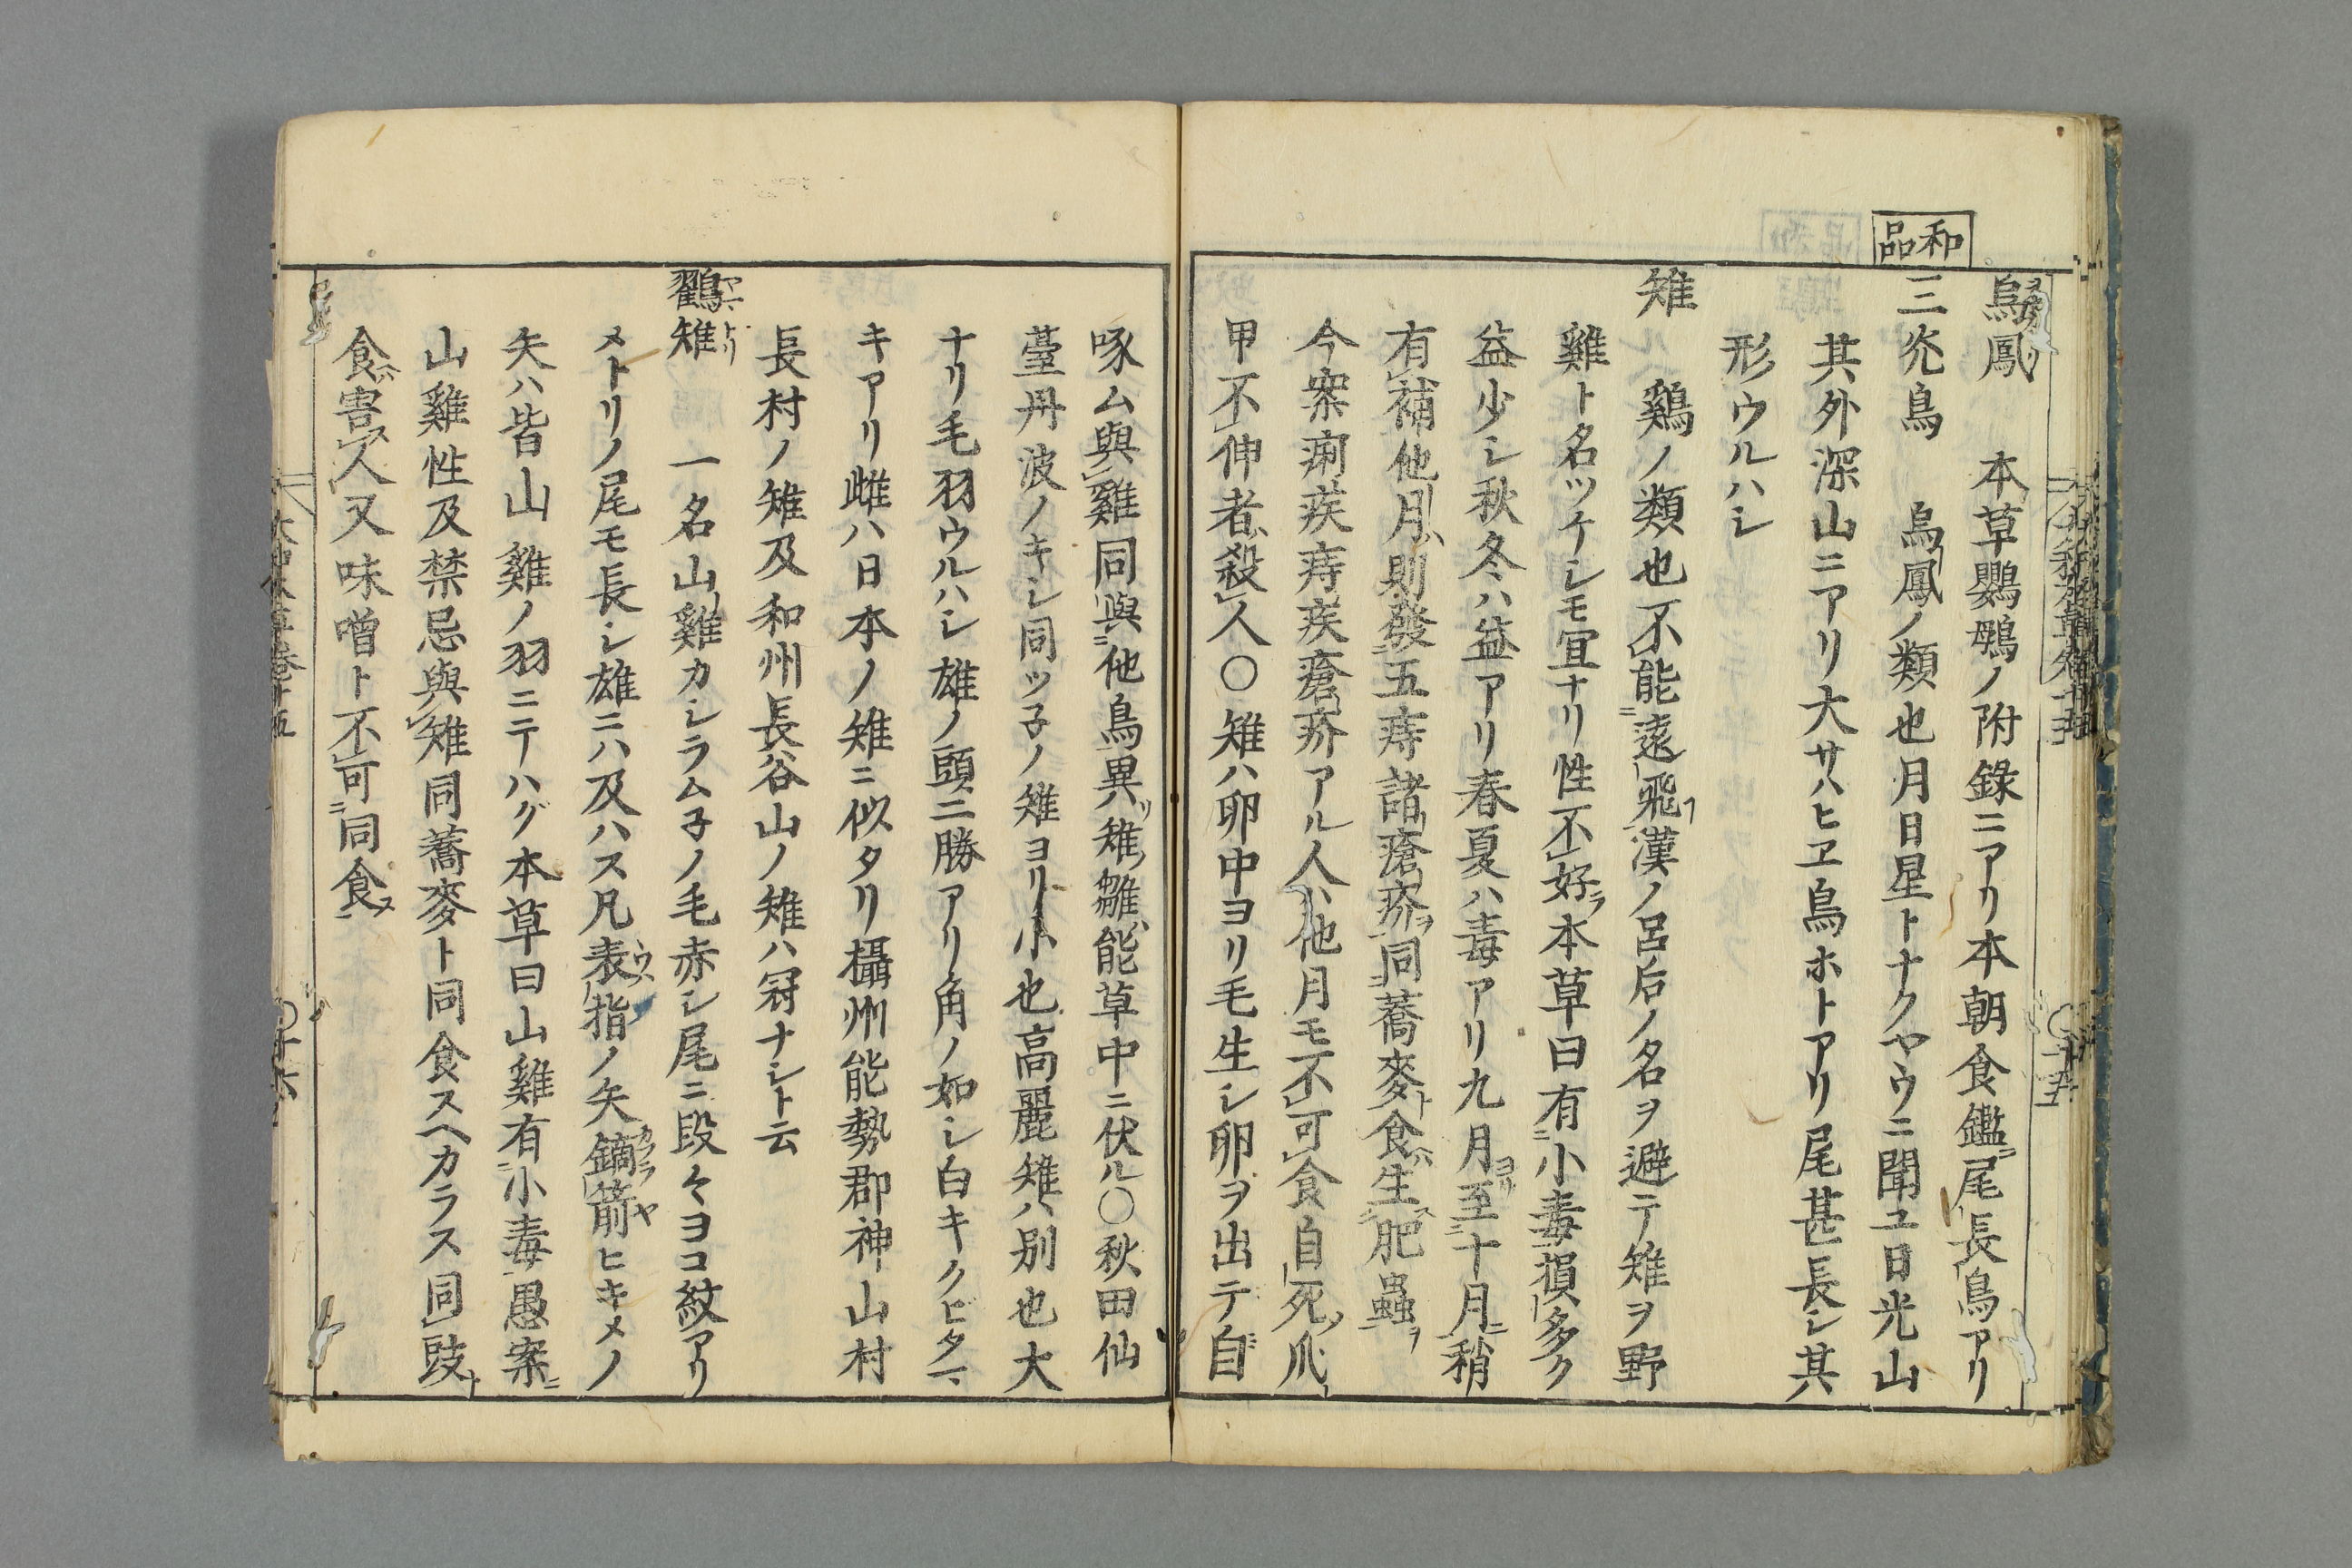 烏鳳　本草鸚䳇ノ附錄ニアリ本朝食鑑ニ尾長鳥アリ
和品
三光鳥　烏鳳ノ類也月日星トナクヤウニ聞ユ日光山
其外深山ニアリ大サハヒヱ鳥ホトアリ尾甚長シ其
形ウルハシ
雉　鷄ノ類也不能遠飛漢ノ呂后ノ名ヲ避テ雉ヲ野
雞ト名ツケシモ宜ナリ性不好本草曰有小毒損多ク
益少シ秋冬ハ益アリ春夏ハ毒アリ九月ヨリ至十月稍
有補他月ハ則發五痔諸瘡疥ヲ同蕎麥ト食ヘハ生肥蟲ヲ
今案痢疾痔疾瘡疥アル人ハ他月モ不可食自死爪
甲不伸者殺人〇雉ハ卵中ヨリ毛生シ卵ヲ出テ自
啄ム與雞同與他鳥異雉ノ雛ハ能草中ニ伏ル〇秋田仙
臺丹波ノキシ同ツ子ノ雉ヨリ小也高麗雉ハ別也大
ナリ毛羽ウルハシ雄ノ頭ニ勝アリ角ノ如シ白キクビタマ
キアリ雌ハ日本ノ雉ニ似タリ攝州能勢郡神山村
長村ノ雉及和州長谷山ノ雉ハ冠ナシト云
鸐雉　一名山雞カシラム子ノ毛赤シ尾ニ段々ヨコ紋アリ
メトリノ尾モ長シ雄ニハ及ハス凡表指ノ矢鏑箭ヒキメノ
矢ハ皆山雞ノ羽ニテハグ本草曰山雞有小毒愚案ニ
山雞性及禁忌與雉同蕎麥ト同食スヘカラス同豉ト
食ヘハ害人又味噌ト不可同食